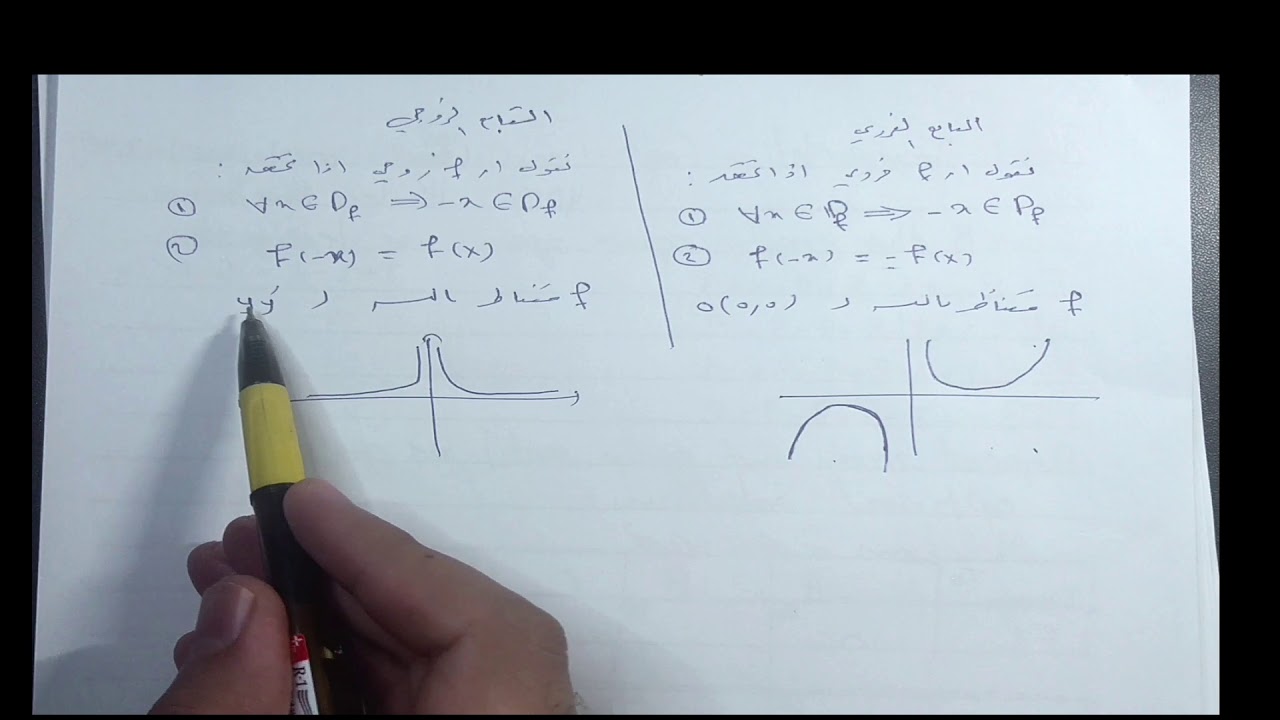 التابع الفردي
نقول ان f فردي اذا تحقق :
① ∀x ∈ Df ⇒ -x ∈ Df
② f(-x) = -f(x)
f متناظر بالنسبة لـ O(0,0)
التابع الزوجي
نقول ان f زوجي اذا تحقق :
① ∀x ∈ Df ⇒ -x ∈ Df
② f(-x) = f(x)
f متناظر بالنسبة لـ yy'
R1